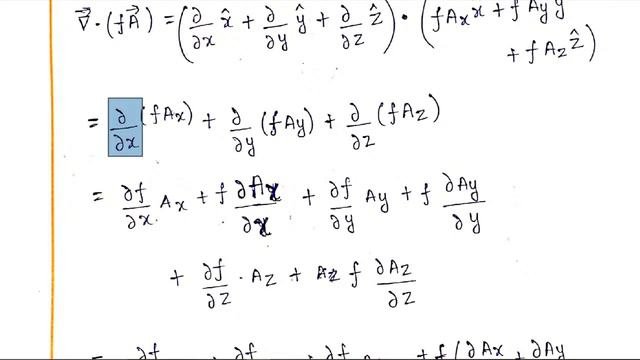 ∇⃗ · (fA⃗) = (∂/∂x x̂ + ∂/∂y ŷ + ∂/∂z ẑ) · (fAₓx + fAyy
+ fAzẑ)
= ∂/∂x (fAx) + ∂/∂y (fAy) + ∂/∂z (fAz)
= ∂f/∂x Ax + f ∂Ax/∂x + ∂f/∂y Ay + f ∂Ay/∂y
+ ∂f/∂z · Az + Az f ∂Az/∂z
= ∂f ∂f ∂f + f(∂Ax + ∂Ay